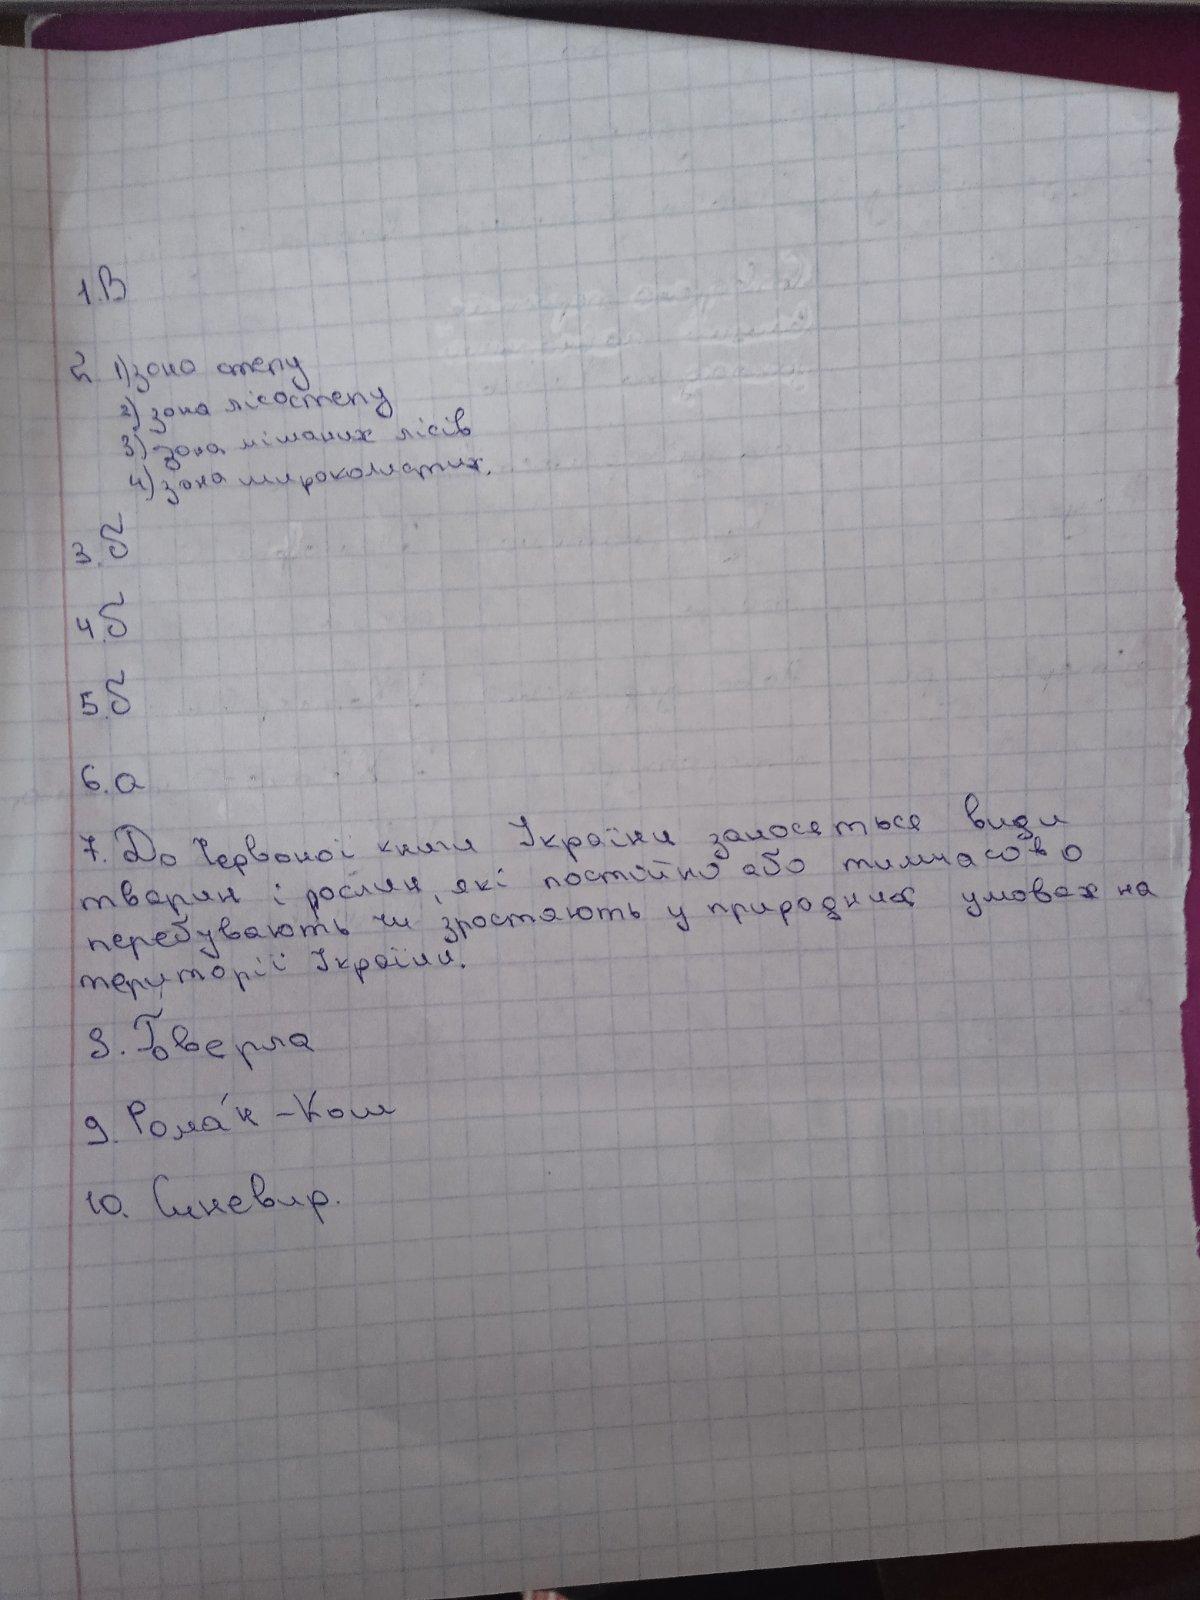 1. В
2. 1) зона степу
2) зона лісостепу
3) зона мішаних лісів
4) зона широколистих.
3. б
4. б
5. б
6. а
7. До Червоної книги України заносяться види
тварин і рослин, які постійно або тимчасово
перебувають чи зростають у природних умовах на
території України.
8. Говерла
9. Рома́н-Кош
10. Синевир.